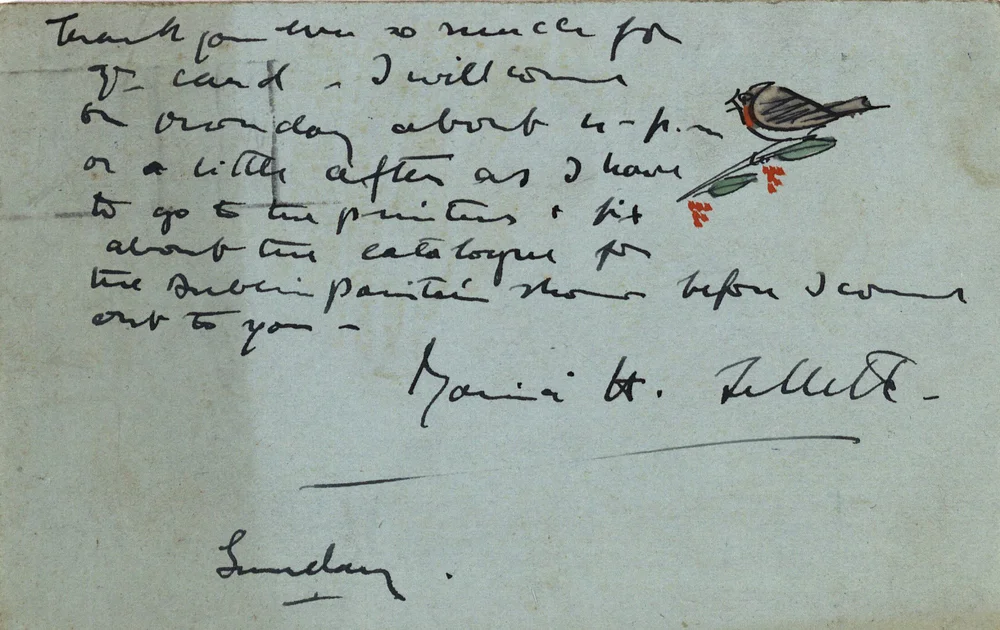 Thank you ever so much for
yr card - I will come
on Monday about 4-p.m
or a little after as I have
to go to the printers & fix
about the catalogue for
the Dublin Painters show before I come
out to you -
Mainie H. Jellett -
Sunday.